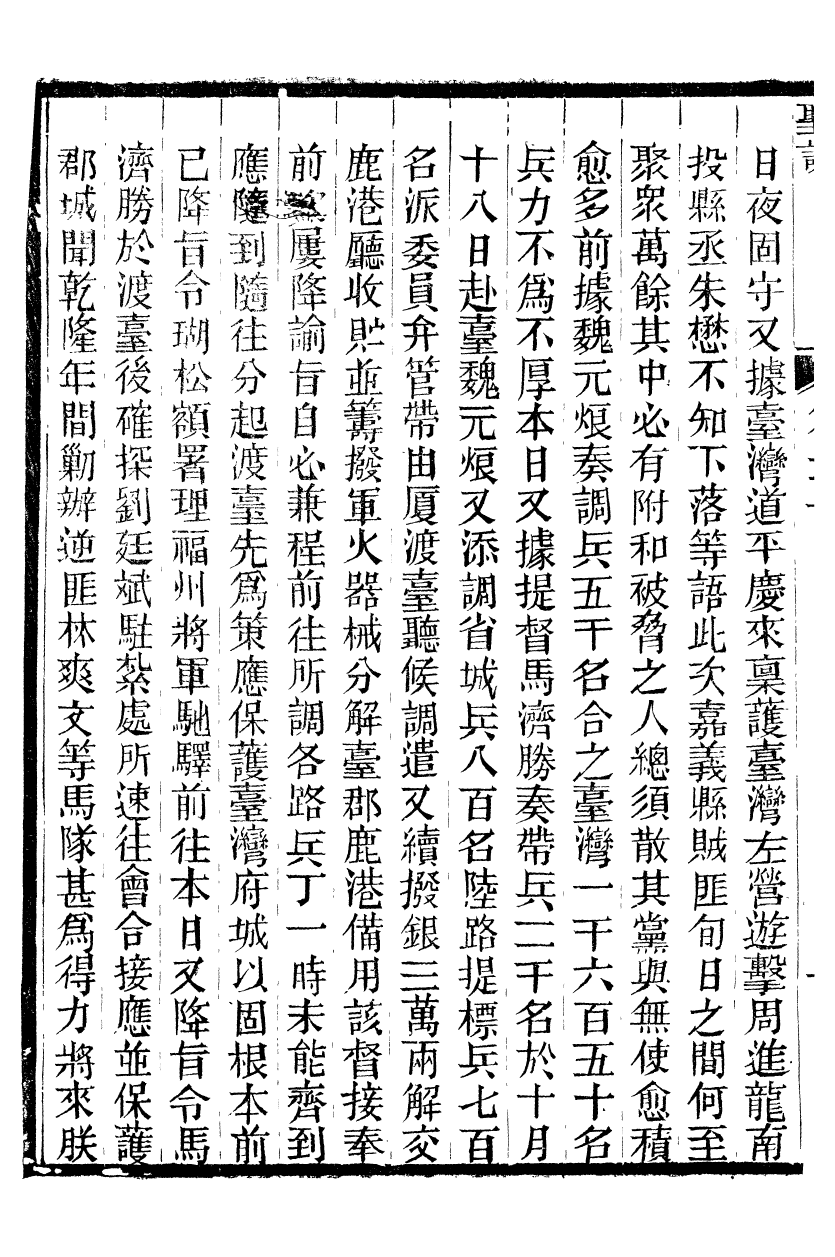 日夜固守又據臺灣道平慶來稟護臺灣左營遊擊周進龍南
投縣丞朱懋不知下落等語此次嘉義縣賊匪旬日之間何至
聚眾萬餘其中必有附和被脅之人總須散其黨與無使愈積
愈多前據魏元烺奏調兵五千名合之臺灣一千六百五十名
兵力不爲不厚本日又據提督馬濟勝奏帶兵二千名於十月
十八日赴臺魏元烺又添調省城兵八百名陸路提標兵七百
名派委員弁管帶由厦渡臺聽候調遣又續撥銀三萬兩解交
鹿港廳收貯並籌撥軍火器械分解臺郡鹿港備用該督接奉
前屢降諭旨自必兼程前往所調各路兵丁一時未能齊到
應隨到隨往分起渡臺先爲策應保護臺灣府城以固根本前
已降旨令瑚松額署理福州將軍馳驛前往本日又降旨令馬
濟勝於渡臺後確探劉廷斌駐紮處所速往會合接應並保護
郡城聞乾隆年間勦辦逆匪林爽文等馬隊甚爲得力將來朕